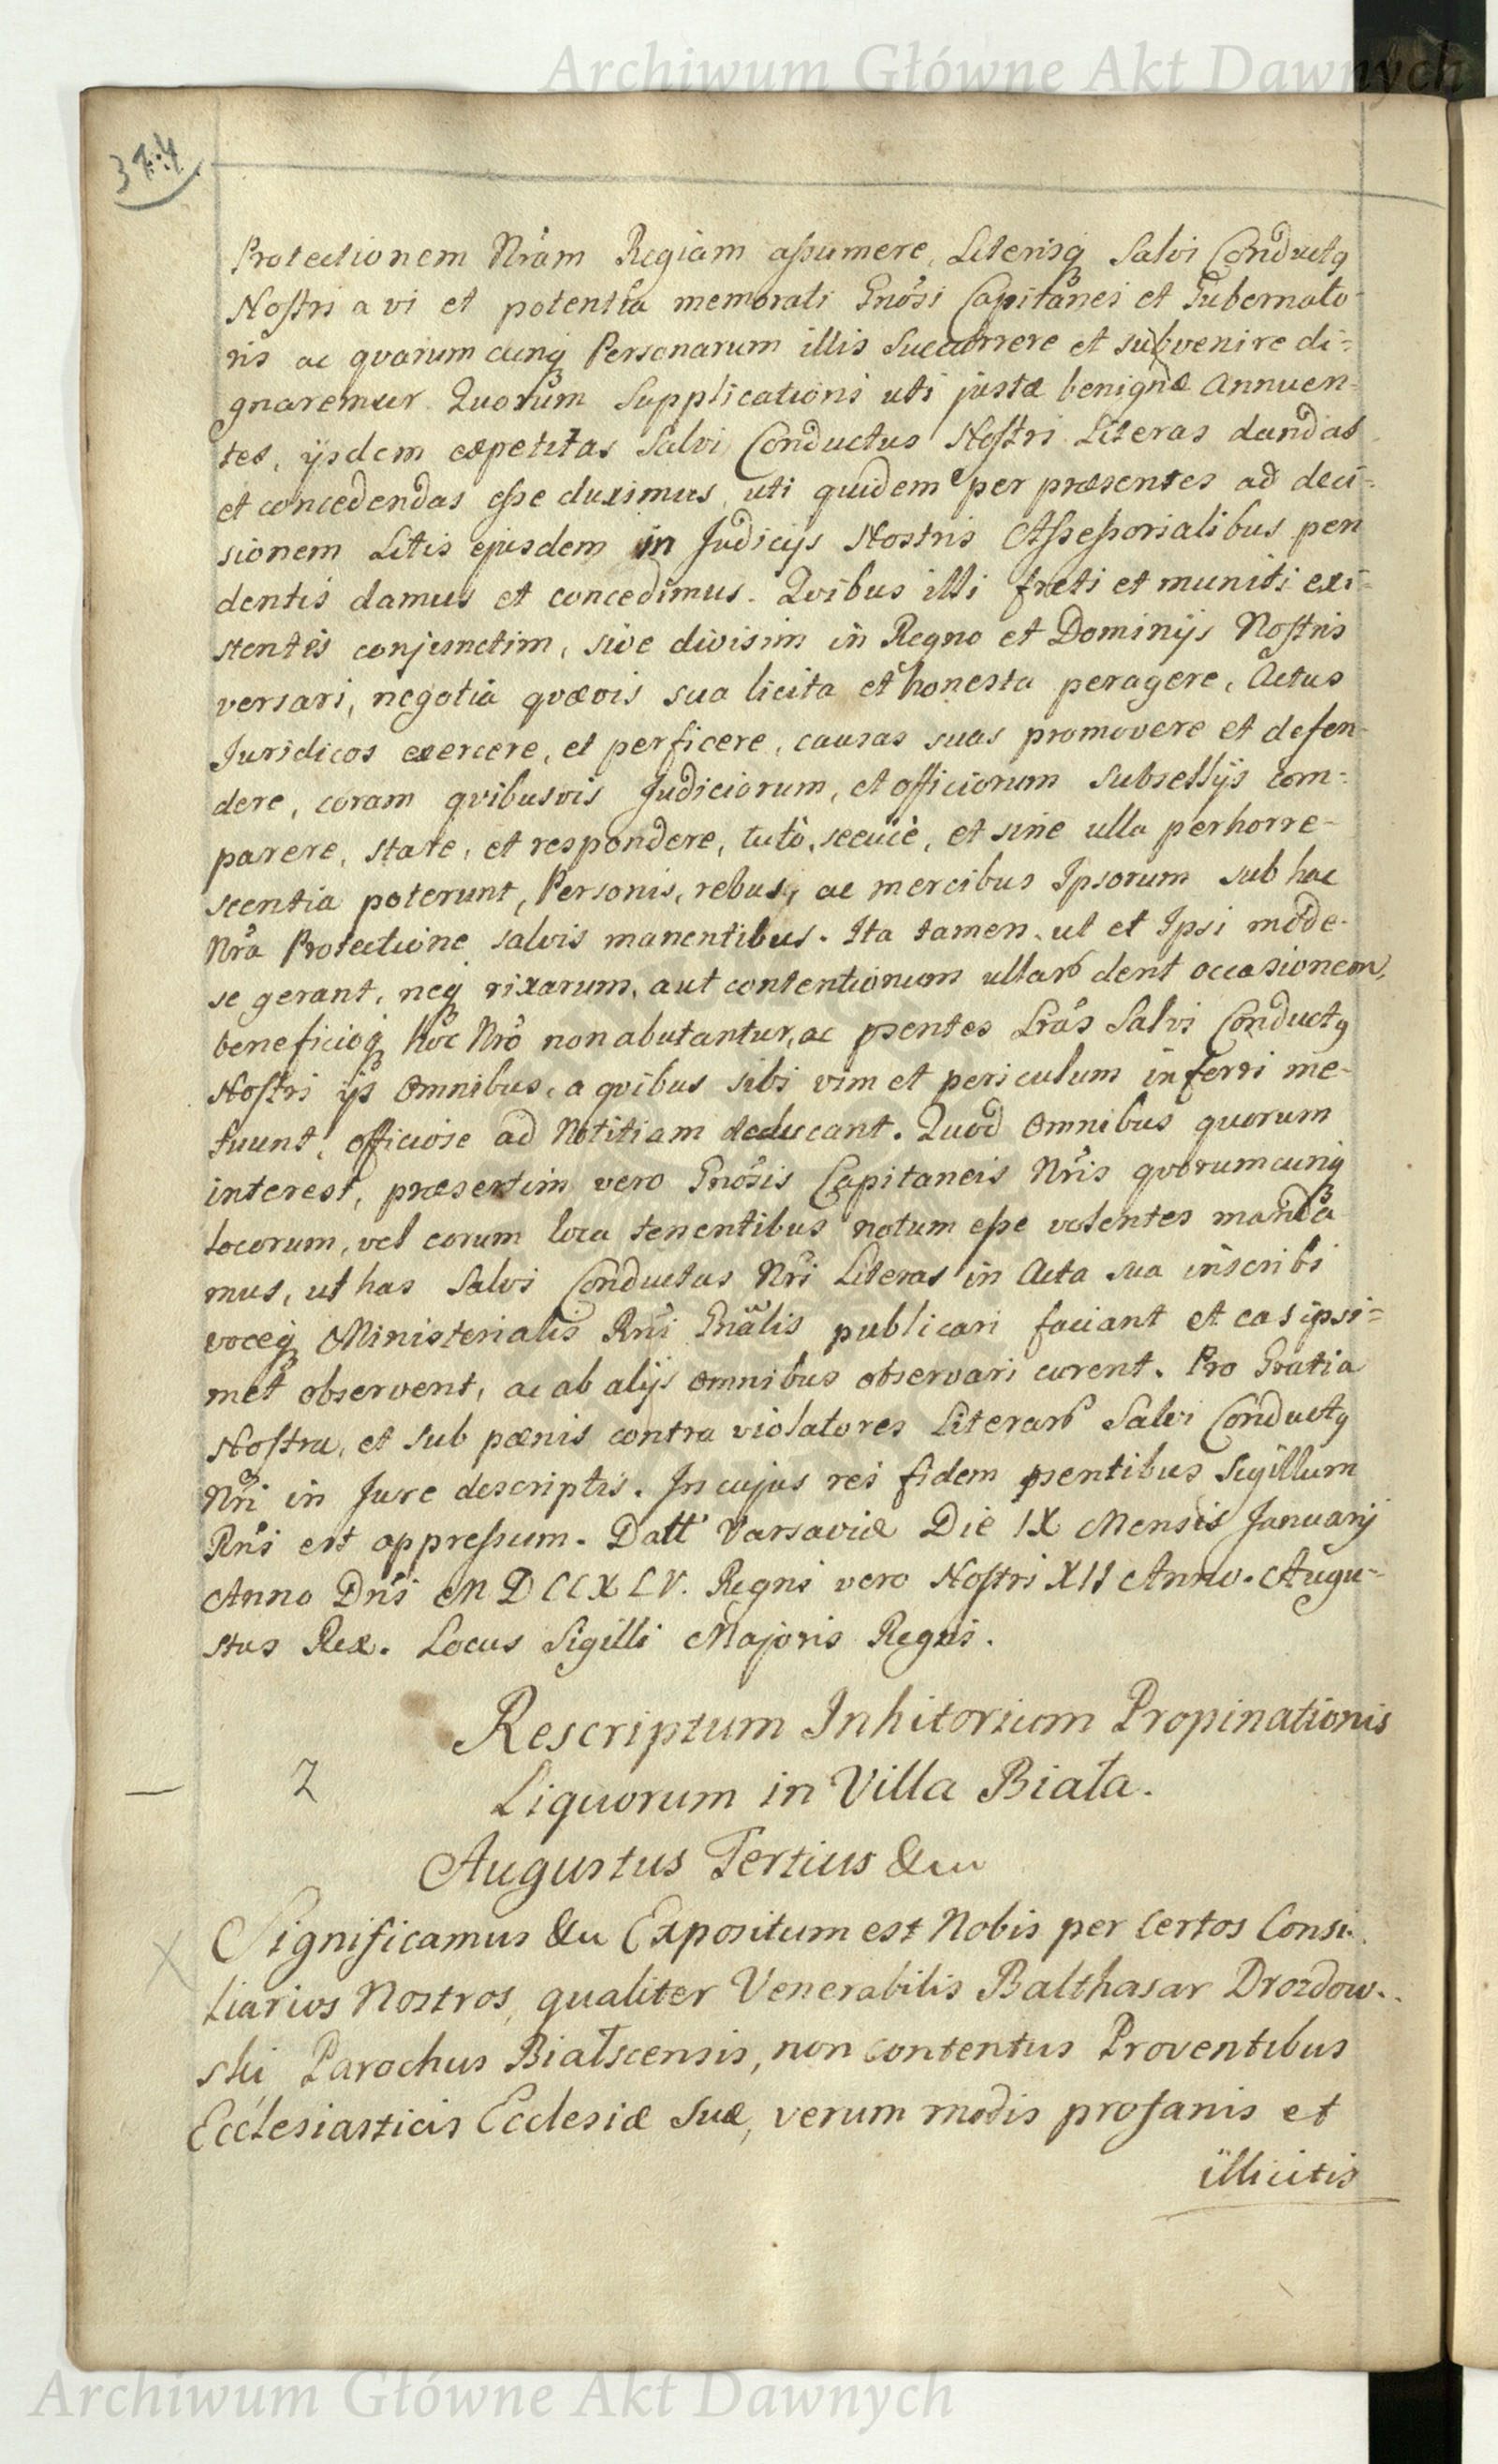 Archiwum Główne Akt Dawnych
374
Protectionem Nrãm Regiam aſsumere, Literisq̃ Salvi Conductq
Noſtri a vi et potentia memorati Gnõsi Capitanei et Gubernato-
ris ac qvarumcunq̃ Personarum illis Succurrere et subvenire di=
gnaremur. Quorum Supplicationi uti justæ benignæ Annuen-
tes, ijsdem expetitas Salvi Conductus Noſtri Literas dandas
et concedendas eſse duximus, uti quidem per præsentes ad deci=
sionem Litis ejusdem in Judicijs Nostris Aſseſsorialibus pen
dentis damus et concedimus. Qvibus illi freti et muniti exi=
stentes conjunctim, sive divisim in Regno et Dominijs Noſtris
versari, negotia qvævis sua licita et honesta peragere, Actus
Juridicos exercere, et perficere, causas suas promovere et defen-
dere, coram qvibusvis Judiciorum, et officiorum Subsellijs com=
parere, stare, et respondere, tutò, secuïè, et sine ulla perhorre-
scentia poterunt, Personis, rebusq̃ ac mercibus Ipsorum sub hac
Nrã Protectione salvis manentibus. Ita tamen, ut et Ipsi mode-
se gerant, neq̃ rixarum, aut contentionum ullarũ dent occasionem,
beneficioq̃ hoc Nrõ non abutantur, ac psentes Lrãs Salvi Conductq
Noſtri ijs omnibus, a qvibus sibi vim et periculum inferri me-
tuunt, officiose ad Notitiam deducant. Quod omnibus quorum
interest, præsertim vero Gnõsis Capitaneis Nrĩs qvorumcunq̃
locorum, vel eorum loca tenentibus notum eſse volentes manda
mus, ut has Salvi Conductus Nrĩ Literas in Acta sua inscribi
voceq̃ Ministerialis Rnĩ Gnãlis publicari faciant et eas ipsi=
met observent, ac ab alijs omnibus observari curent. Pro Gratia
Noſtra, et sub pænis contra violatores Literarũ Salvi Conductq
Nrĩ in Jure descriptis. In cujus rei fidem psentibus Sigillum
Rnĩ est appreſsum. Datt Varsaviæ Die IX Mensis Januarij
Anno Dnĩ MDCCXLV. Regni vero Noſtri XII Anno. Augu-
stus Rex. Locus Sigilli Majoris Regni.
Rescriptum Inhitorium Propinationis
2 Liquorum in Villa Biała.
Augustus Tertius &cc
Significamus &c Expositum est Nobis per Certos Consi-
liarios Nostros, qualiter Venerabilis Balthasar Drozdow-
ski Parochus Bialscensis, non contentus Proventibus
Ecclesiasticis Ecclesiæ Suæ, verum modis profanis et
illicitis
Archiwum Główne Akt Dawnych